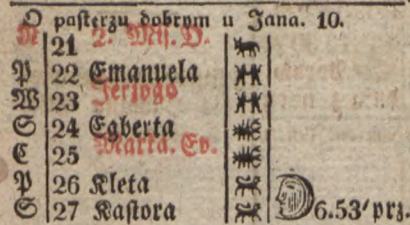 O pasterzu dobrym u Jana. 10.
N 21 2. Mis. D.
P 22 Emanuela
W 23 Jerzego
S 24 Egberta
C 25 Marka. Ev.
P 26 Kleta
S 27 Kastora 6.53' prz.